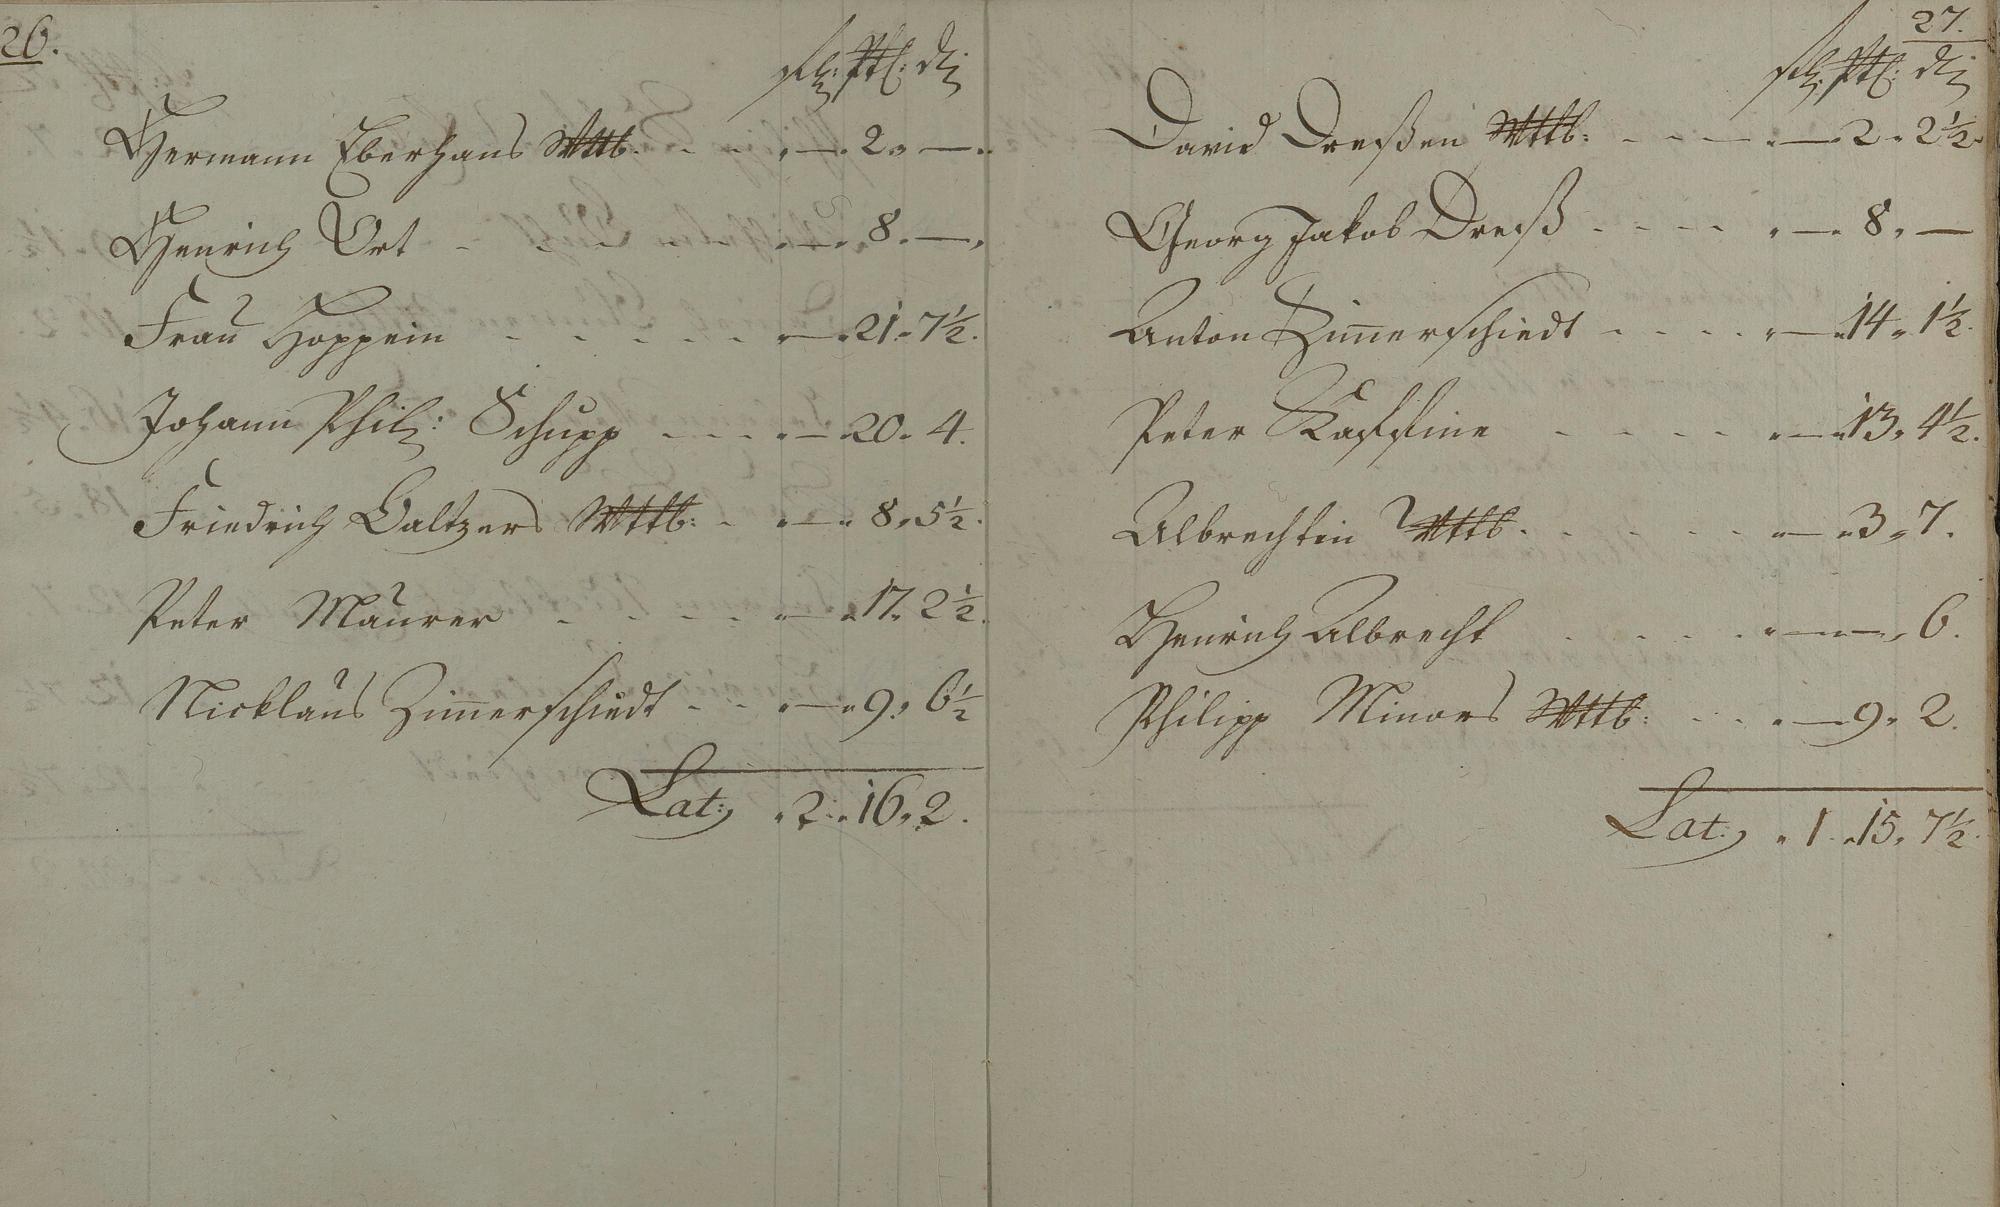 26.
fl: xtl: d
Hermann Eberhans Wttb. - - - „ — „ 2 „ — „
Henrich Ort - - - - - „ — „ 8 „ — „
Frau Hoppein - - - - - „ — „ 21 „ 7½.
Johann Phil: Schupp - - - „ — „ 20 „ 4.
Friedrich Baltzers Wttb: - „ — „ 8 „ 5½.
Peter Maurer - - - - „ — „ 17 „ 2½.
Nicklaus Zimerschiedt - - „ — „ 9 „ 6½
Lat: „ 2 „ 16 „ 2.
27.
fl: xtl: d
David Dreßen Wttb: - - - „ — „ 2 „ 2½.
Georg Jakob Dreß - - - - „ — „ 8 „ —
Anton Zimerschiedt - - - - „ — „ 14 „ 1½.
Peter Kaffine - - - - „ — „ 13 „ 4½.
Albrechtin Wttb. - - - - - „ — „ 3 „ 7.
Henrich Albrecht - - - - „ — „ — „ 6.
Philipp Minors Wttb: - - - „ — 9 „ 2.
Lat: „ 1 „ 15 „ 7½.